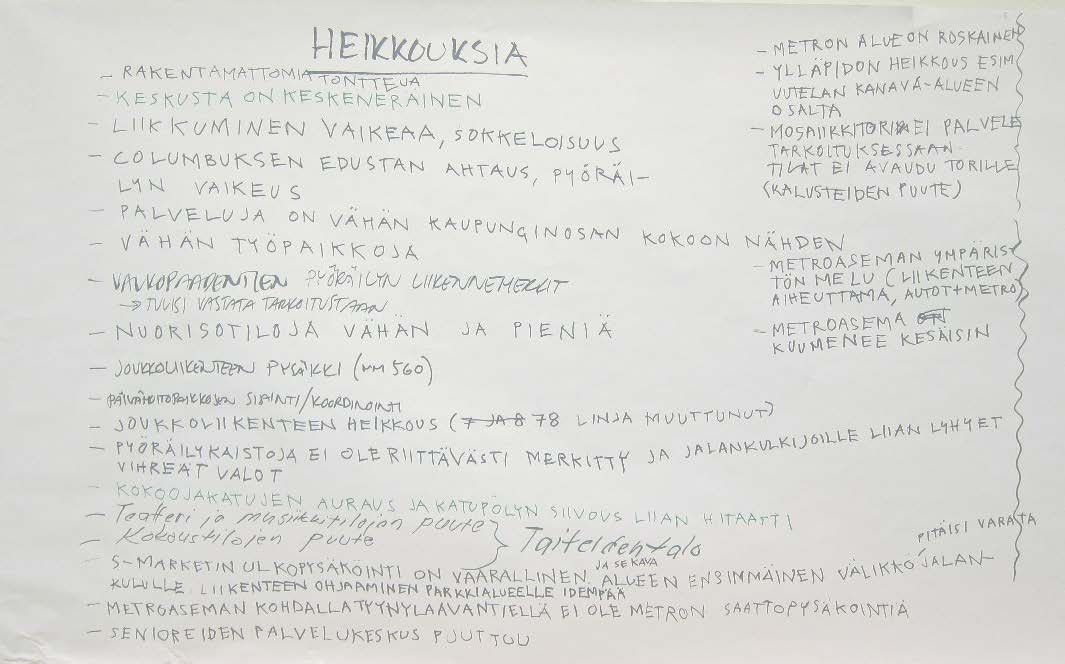 HEIKKOUKSIA
- RAKENTAMATTOMIA TONTTEJA
- KESKUSTA ON KESKENERÄINEN
- LIIKKUMINEN VAIKEAA, SOKKELOISUUS
- COLUMBUKSEN EDUSTAN AHTAUS, PYÖRÄI-
LYN VAIKEUS
- PALVELUJA ON VÄHÄN KAUPUNGINOSAN KOKOON NÄHDEN
- VÄHÄN TYÖPAIKKOJA
- VALKOPAADENTIEN PYÖRÄILYN LIIKENNEMERKIT
→ TULISI VASTATA TARKOITUSTAAN
- NUORISOTILOJA VÄHÄN JA PIENIÄ
- JOUKKOLIIKENTEEN PYSÄKKI (MM 560)
- PÄIVÄHOITOPAIKKOJEN SIJAINTI/KOORDINOINTI
- JOUKKOLIIKENTEEN HEIKKOUS (7 JA 8 78 LINJA MUUTTUNUT)
- PYÖRÄILYKAISTOJA EI OLE RIITTÄVÄSTI MERKITTY JA JALANKULKIJOILLE LIIAN LYHYET
VIHREÄT VALOT
- KOKOOJAKATUJEN AURAUS JA KATUPÖLYN SIIVOUS LIIAN HITAASTI
- Teatteri ja musiikkitilojen puute
- Kokoustilojen puute } Taiteidentalo
- S-MARKETIN ULKOPYSÄKÖINTI ON VAARALLINEN JA SEKAVA. ALUEEN ENSIMMÄINEN VÄLIKKÖ PITÄISI VARATA JALAN-
KULULLE. LIIKENTEEN OHJAAMINEN PARKKIALUEELLE IDEMPÄÄ
- METROASEMAN KOHDALLA TYYNYLAAVANTIELLÄ EI OLE METRON SAATTOPYSÄKÖINTIÄ
- SENIOREIDEN PALVELUKESKUS PUUTTUU
- METRON ALUE ON ROSKAINEN
- YLLÄPIDON HEIKKOUS ESIM
VUTELAN KANAVA-ALUEEN
OSALTA
- MOSAIIKKITORI EI PALVELE
TARKOITUKSESSAAN
TILAT EI AVAUDU TORILLE
(KALUSTEIDEN PUUTE)
- METROASEMAN YMPÄRIS-
TÖN MELU (LIIKENTEEN
AIHEUTTAMA, AUTOT+METRO)
- METROASEMA
KUUMENEE KESÄISIN